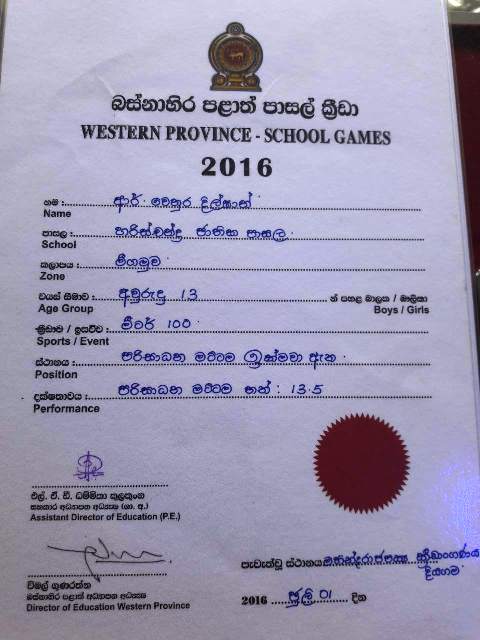 බස්නාහිර පළාත් පාසල් ක්‍රීඩා
WESTERN PROVINCE - SCHOOL GAMES
2016
නම : ආර්. චෙනුර දිල්ශාන්
Name
පාසල : හරිස්චන්ද්‍ර ජාතික පාසල.
School
කලාපය : මීගමුව
Zone
වයස් සීමාව : අවුරුදු 13 න් පහළ බාලක / බාලිකා
Age Group Boys / Girls
ක්‍රීඩාව / ඉසව්ව : මීටර් 100
Sports / Event
ස්ථානය : පරිසාධන මට්ටම ඉක්මවා ඇත.
Position
දක්ෂතාවය : පරිසාධන මට්ටම තත් : 13.5
Performance
එල්. ඒ. ඩී. ධම්මිකා කුලතුංග
සහකාර අධ්‍යාපන අධ්‍යක්ෂ (ශා. අ.)
Assistant Director of Education (P.E.)
විමල් ගුණරත්න
බස්නාහිර පළාත් අධ්‍යාපන අධ්‍යක්ෂ
Director of Education Western Province
පැවැත්වූ ස්ථානය මහින්ද රාජපක්ෂ ක්‍රීඩාංගණය
දියගම
2016 ජූලි 01 දින